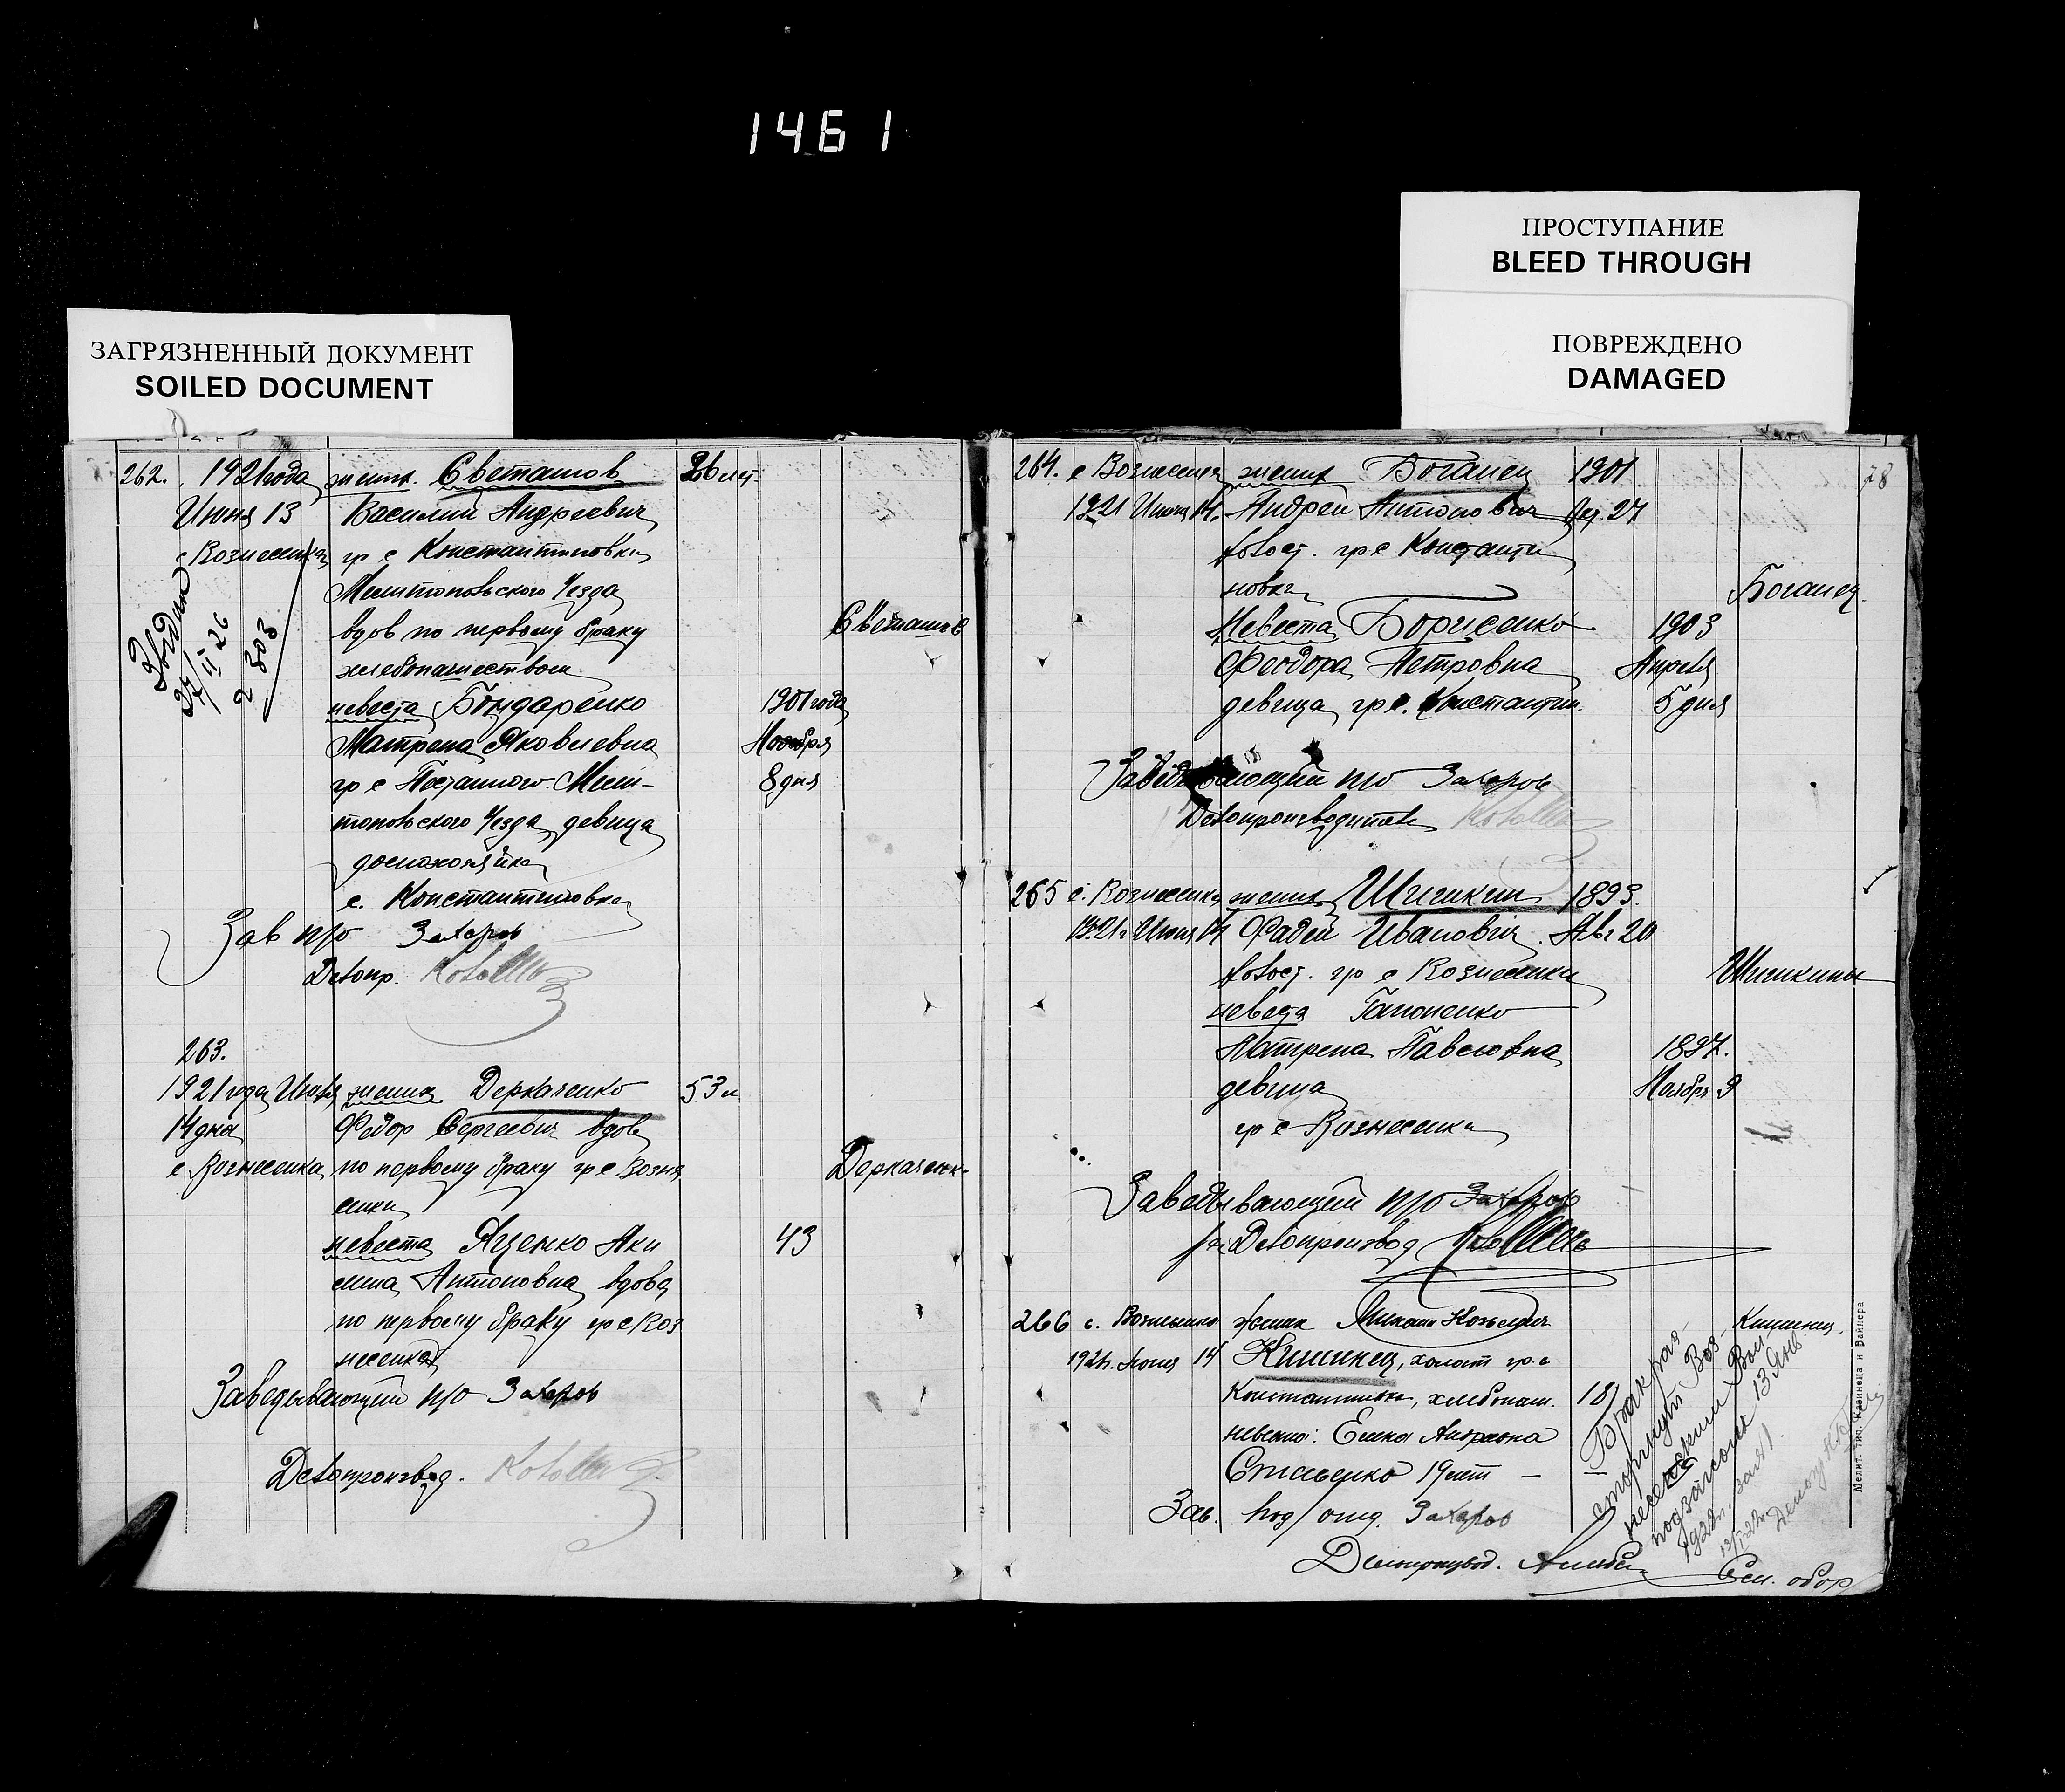 1461
ПРОСТУПАНИЕ
BLEED THROUGH
ПОВРЕЖДЕНО
DAMAGED
ЗАГРЯЗНЕННЫЙ ДОКУМЕНТ
SOILED DOCUMENT
262. 1921 года жених. Светашов 26 лет.
Июня 13 Василий Андреевич
с Вознесенка гр с Константиновки
Мелитопольского Уезда
вдов по первому браку Светашов
хлебопашеством
невеста Бондаренко 1901 года
Матрена Яковлевна Ноября
гр с Мели- 8 дня
топольского Уезда девица
домохозяйка
с. Константиновка
Зав п/о Захаров
Делопр.
27/II 26
263.
1921 года Июня жених Деркаченко 53 л
14 дня Федор Сергеевич вдов
с Вознесенка по первому браку гр с Возне Деркаченк
сенки
невеста Яценко Аки 43
лина Антоновна вдова
по первому браку гр с Воз
несенка
Заведывающий п/о Захаров
Делопроизвод.
78
264. с Вознесенка жених Боганец 1901
1921 Июня 14. Андрей Антонович Дек 27
холост. гр с Константи
новки Боганец
Невеста Борисенко 1903
Феодора Петровна Апреля
девица гр с. Константин. 5 дня
Заведывающий п/о Захаров
Делопроизводитель
265 с. Вознесенка жених Шишкин 1893.
1921 г Июня 14 Фадей Иванович Авг 20
холост. гр с Вознесенки Шишкины
невеста Гапоненко
Матрена Павловна 1897.
девица Ноября 9
гр с Вознесенки
Заведывающий п/о Захаров
за Делопроизвод
266 с. Вознесенка жених Михаил Кишинец.
1921 г. Июня 14 Кишинец, холост гр. с
Константиновки, хлебопаш. 18
невеста: Елена Андреевна
Стасенко 19 лет —
Зав. под/отд. Захаров
Делопроизвод.
Брак рас-
торгнут Воз-
несенским Вол-
подзагсом 13 Янв
1922 г.
См. обор
Мелит. тип. Казинеца и Вайнера